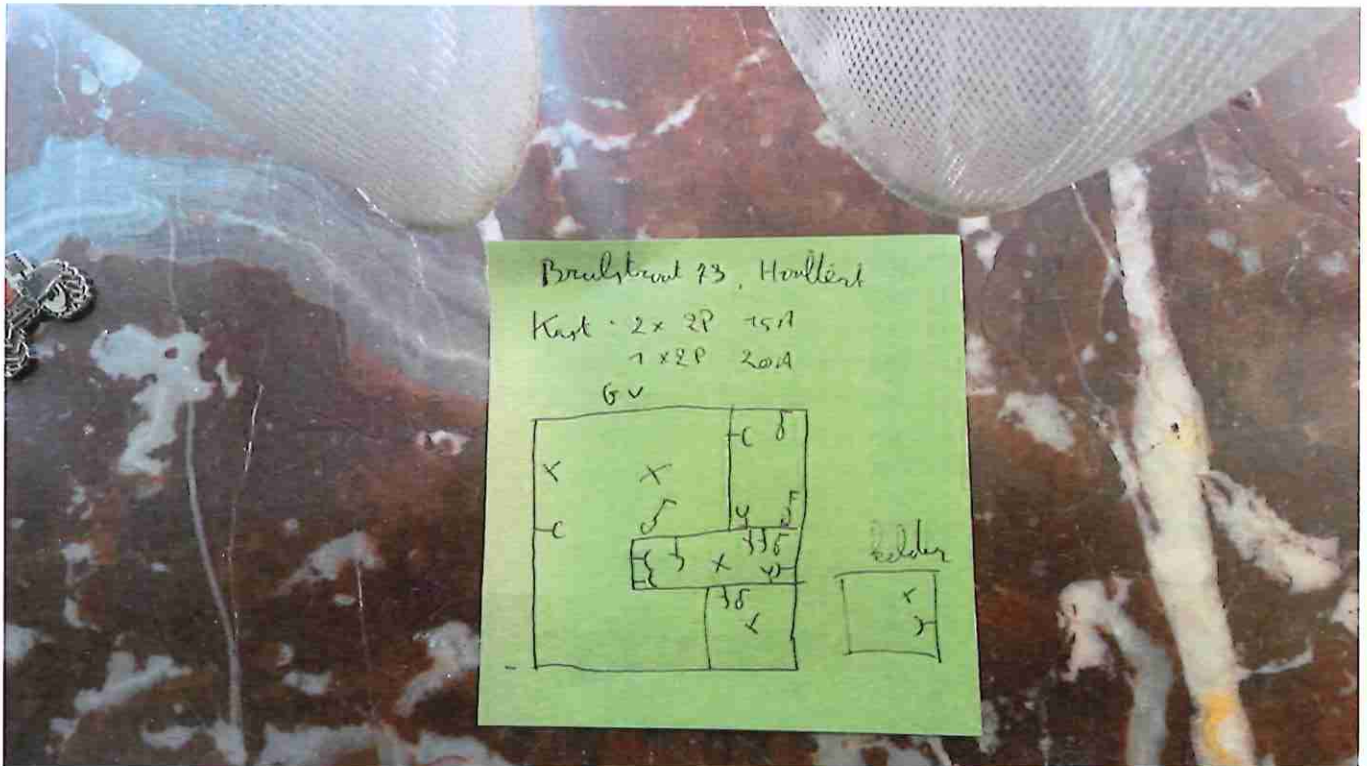 Brulstraat 73, Houthulst
Kast : 2 x 2P 15A
1 x 2P 20A
GV
kelder